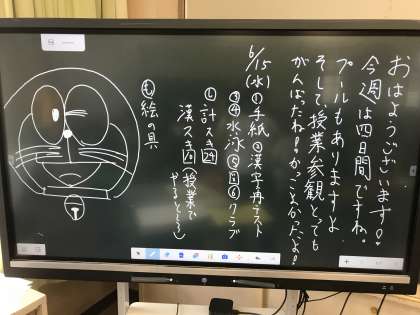 おはようございます!
今週は四日間ですね。
プールもありますよ
そして、授業参観とっても
がんばったね!かっこよかったよ!
6/15(水)①手紙②漢字再テスト
③④水泳⑤図⑥クラブ
㊁計スき24
漢スき(授業で
やるところ)
も絵の具